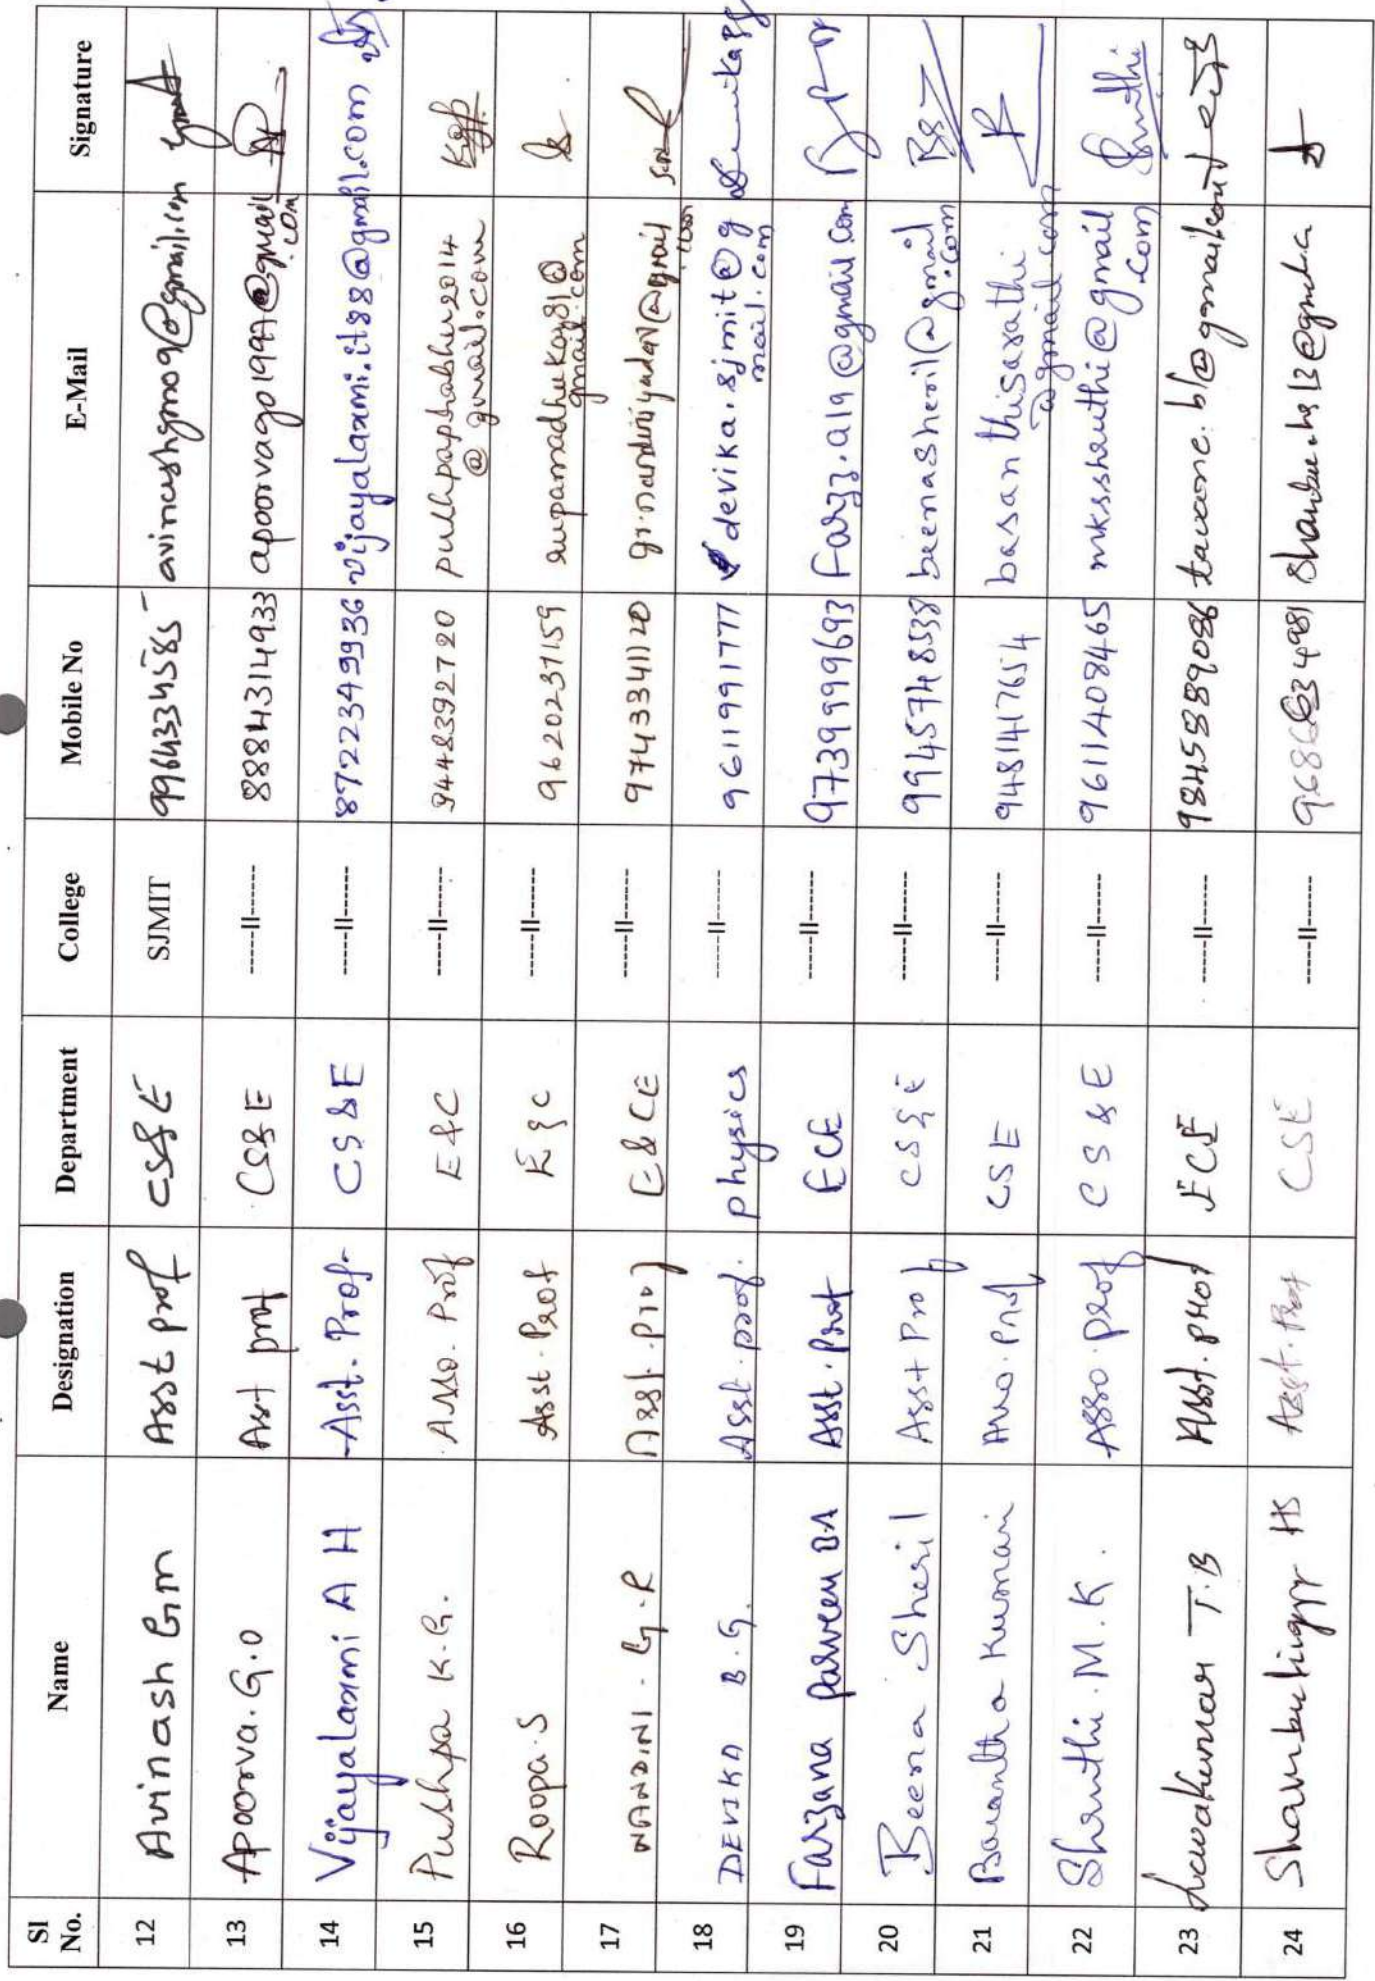 Sl No. Name Designation Department College Mobile No E-Mail Signature
12 Avinash G m Asst prof CS&E SJMIT 9964334585 avinashgmo9@gmail.com
13 Apoorva.G.O Asst prof CS&E -----||------ 8884314933 apoorvago1997@gmail.com
14 Vijayalaxmi A H Asst. Prof. CS&E -----||------ 8722349936 vijayalaxmi.it88@gmail.com
15 Pushpa K.G. Asso. Prof E&C -----||------ 9448392720 pushpaprabhu2014
@gmail.com
16 Roopa.S Asst. Prof E&C -----||------ 9620237159 rupamadhukar81@
gmail.com
17 NANDINI. G.R Asst. prof E&CE -----||------ 9743341120 gr.nandiniyadav@gmail
.com
18 DEVIKA B.G. Asst. prof. physics -----||------ 9611991777 devika.sjmit@g
mail.com
19 Farzana Parveen B.A Asst. Prof ECE -----||------ 9739999693 farzz.a19@gmail.com
20 Beena Sheril Asst Prof CS&E -----||------ 9945748538 beenasheril@gmail
.com
21 Basantha Kumari Asso. Prof CSE -----||------ 9481417654 basanthisarathi
@gmail.com
22 Shruthi.M.K. Asso. prof CS&E -----||------ 9611408465 mks.shruthi@gmail
.com Shruthi
23 Lavakumar T.B Asst. prof ECE -----||------ 9845589086
24 Shambulingappa HS Asst. Prof CSE -----||------